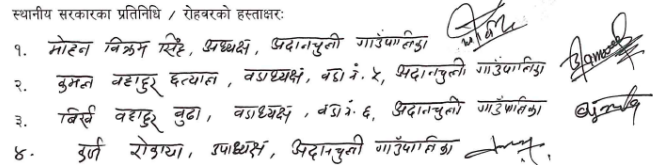 स्थानीय सरकारका प्रतिनिधि / रोहवरको हस्ताक्षरः
१. मोहन विक्रम सिंह, अध्यक्ष, अदानचुली गाउँपालिका
२. बहादुर वडाध्यक्ष, वडा नं. ५, अदानचुली गाउँपालिका
३. बिर्ख बहादुर बुढा, वडाध्यक्ष, वडा नं. ६, अदानचुली गाउँपालिका
४. रोकाया, उपाध्यक्ष, अदानचुली गाउँपालिका